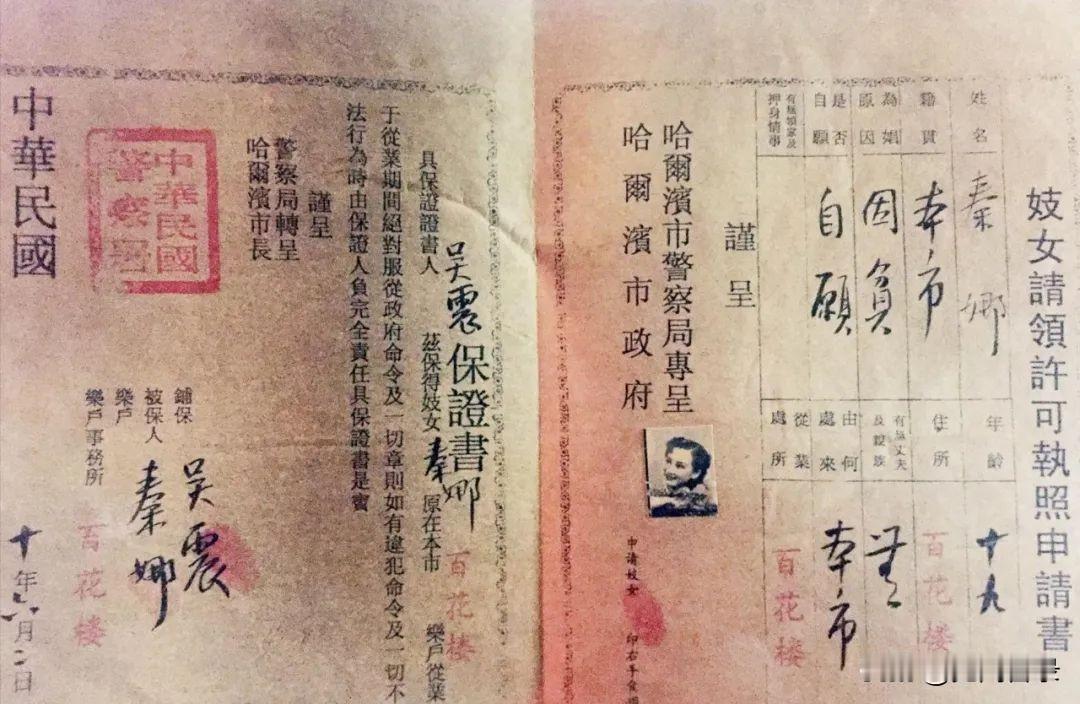 妓女請領許可執照申請書
姓名 秦娜 年齡 十九
籍貫 本市 住所 百花楼
為娼原因 因負 有無丈夫及親族 無
是否自願 自願 由何處來 本市
有無領家及押身情事 從業處所 百花楼
謹呈
哈爾濱市警察局專呈
哈爾濱市政府
申请妓女 印右手食指
保證書
具保證證書人 吴震 茲保得妓女 秦娜 原在本市 百花楼 樂戶從業
于從業期間絕對服從政府命令及一切章則如有違犯命令及一切不
法行為時由保證人負完全責任具保證書是實
謹呈
警察局轉呈
哈爾濱市長
中華民國
警察署
鋪保 吴震
被保人 秦娜
樂戶
樂戶事務所 百花楼
中華民國 十年六月二日